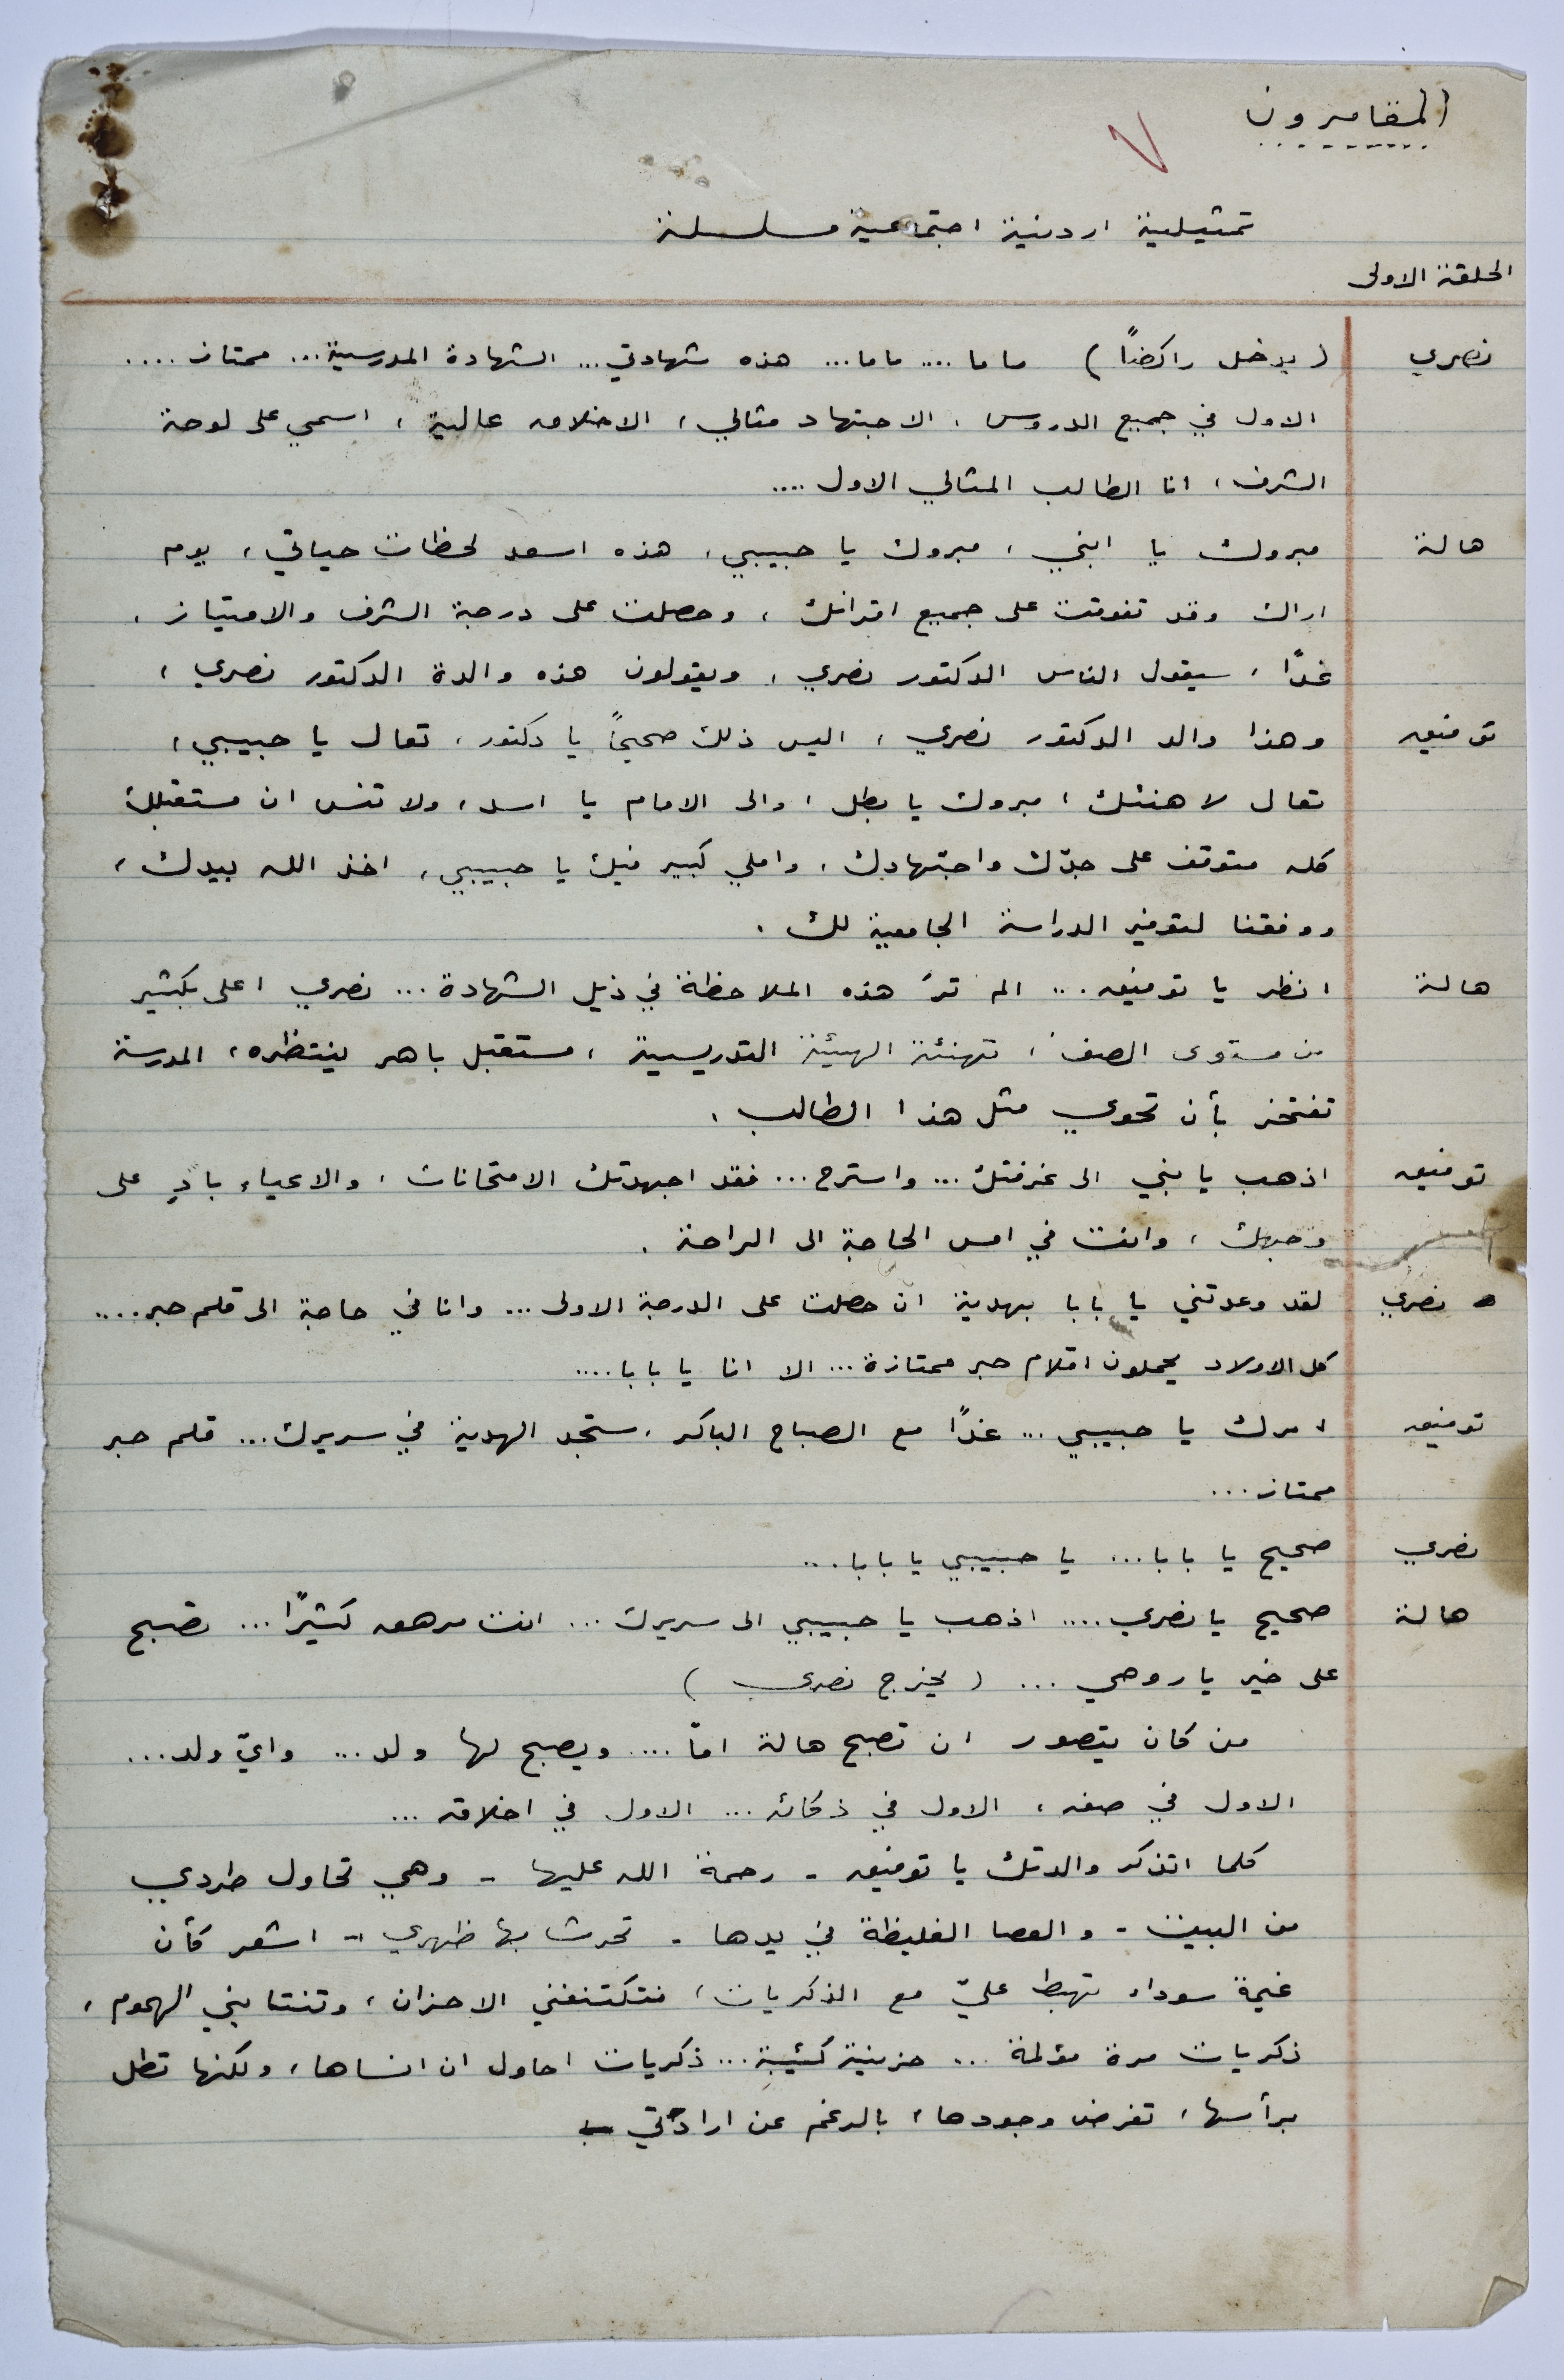 المقامرون
تمثيلية اردنية اجتماعية مسلسلة
الحلقة الاولى
نصري (يدخل راكضاً) ماما .... ماما ... هذه شهادتي ... الشهادة المدرسية ... ممتاز ....
الاول في جميع الدروس ، الاجتهاد مثالي ، الاخلاق عالية ، اسمي على لوحة
الشرف ، انا الطالب المثالي الاول ....
هالة مبروك يا ابني ، مبروك يا حبيبي ، هذه اسعد لحظات حياتي ، يوم
اراك وقد تفوقت على جميع اقرانك ، وحصلت على درجة الشرف والامتياز ،
غداً ، سيقول الناس الدكتور نصري ، ويقولون هذه والدة الدكتور نصري ،
توفيق وهذا والد الدكتور نصري ، اليس ذلك صحيحاً يا دكتور ، تعال يا حبيبي ،
تعال لاهنئك ، مبروك يا بطل ، والى الامام يا اسد ، ولا تنس ان مستقبلك
كله متوقف على جدّك واجتهادك ، واملي كبير فيك يا حبيبي ، اخذ الله بيدك ،
ووفقنا لتوفير الدراسة الجامعية لك .
هالة انظر يا توفيق ... الم ترَ هذه الملاحظة في ذيل الشهادة ... نصري اعلى بكثير
من مستوى الصف ، تهنئة الهيئة التدريسية ، مستقبل باهر ينتظره ، المدرسة
تفتخر بأن تحوي مثل هذا الطالب .
توفيق اذهب يا بني الى غرفتك ... واسترح ... فقد اجهدتك الامتحانات ، والاعياء بادٍ على
وجهك ، وانت في امس الحاجة الى الراحة .
نصري لقد وعدتني يا بابا بهدية ان حصلت على الدرجة الاولى ... وانا في حاجة الى قلم حبر ....
كل الاولاد يحملون اقلام حبر ممتازة ... الا انا يا بابا ....
توفيق امرك يا حبيبي ... غداً مع الصباح الباكر ، ستجد الهدية في سريرك ... قلم حبر
ممتاز ...
نصري صحيح يا بابا ... يا حبيبي يا بابا ...
هالة صحيح يا نصري .... اذهب يا حبيبي الى سريرك ... انت مرهق كثيراً ... تصبح
على خير يا روحي ... (يخرج نصري)
من كان يتصور ان تصبح هالة امّا .... ويصبح لها ولد ... وايّ ولد ...
الاول في صفه ، الاول في ذكائه ... الاول في اخلاقه ...
كلما اتذكر والدتك يا توفيق - رحمة الله عليها - وهي تحاول طردي
من البيت - والعصا الغليظة في يدها - تحرث بها ظهري - اشعر كأن
غيمة سوداء تهبط عليّ مع الذكريات ، فتكتنفني الاحزان ، وتنتابني الهموم ،
ذكريات مرة مؤلمة ... حزينة كئيبة ... ذكريات احاول ان انساها ، ولكنها تطل
برأسها ، تفرض وجودها ، بالرغم عن ارادتي